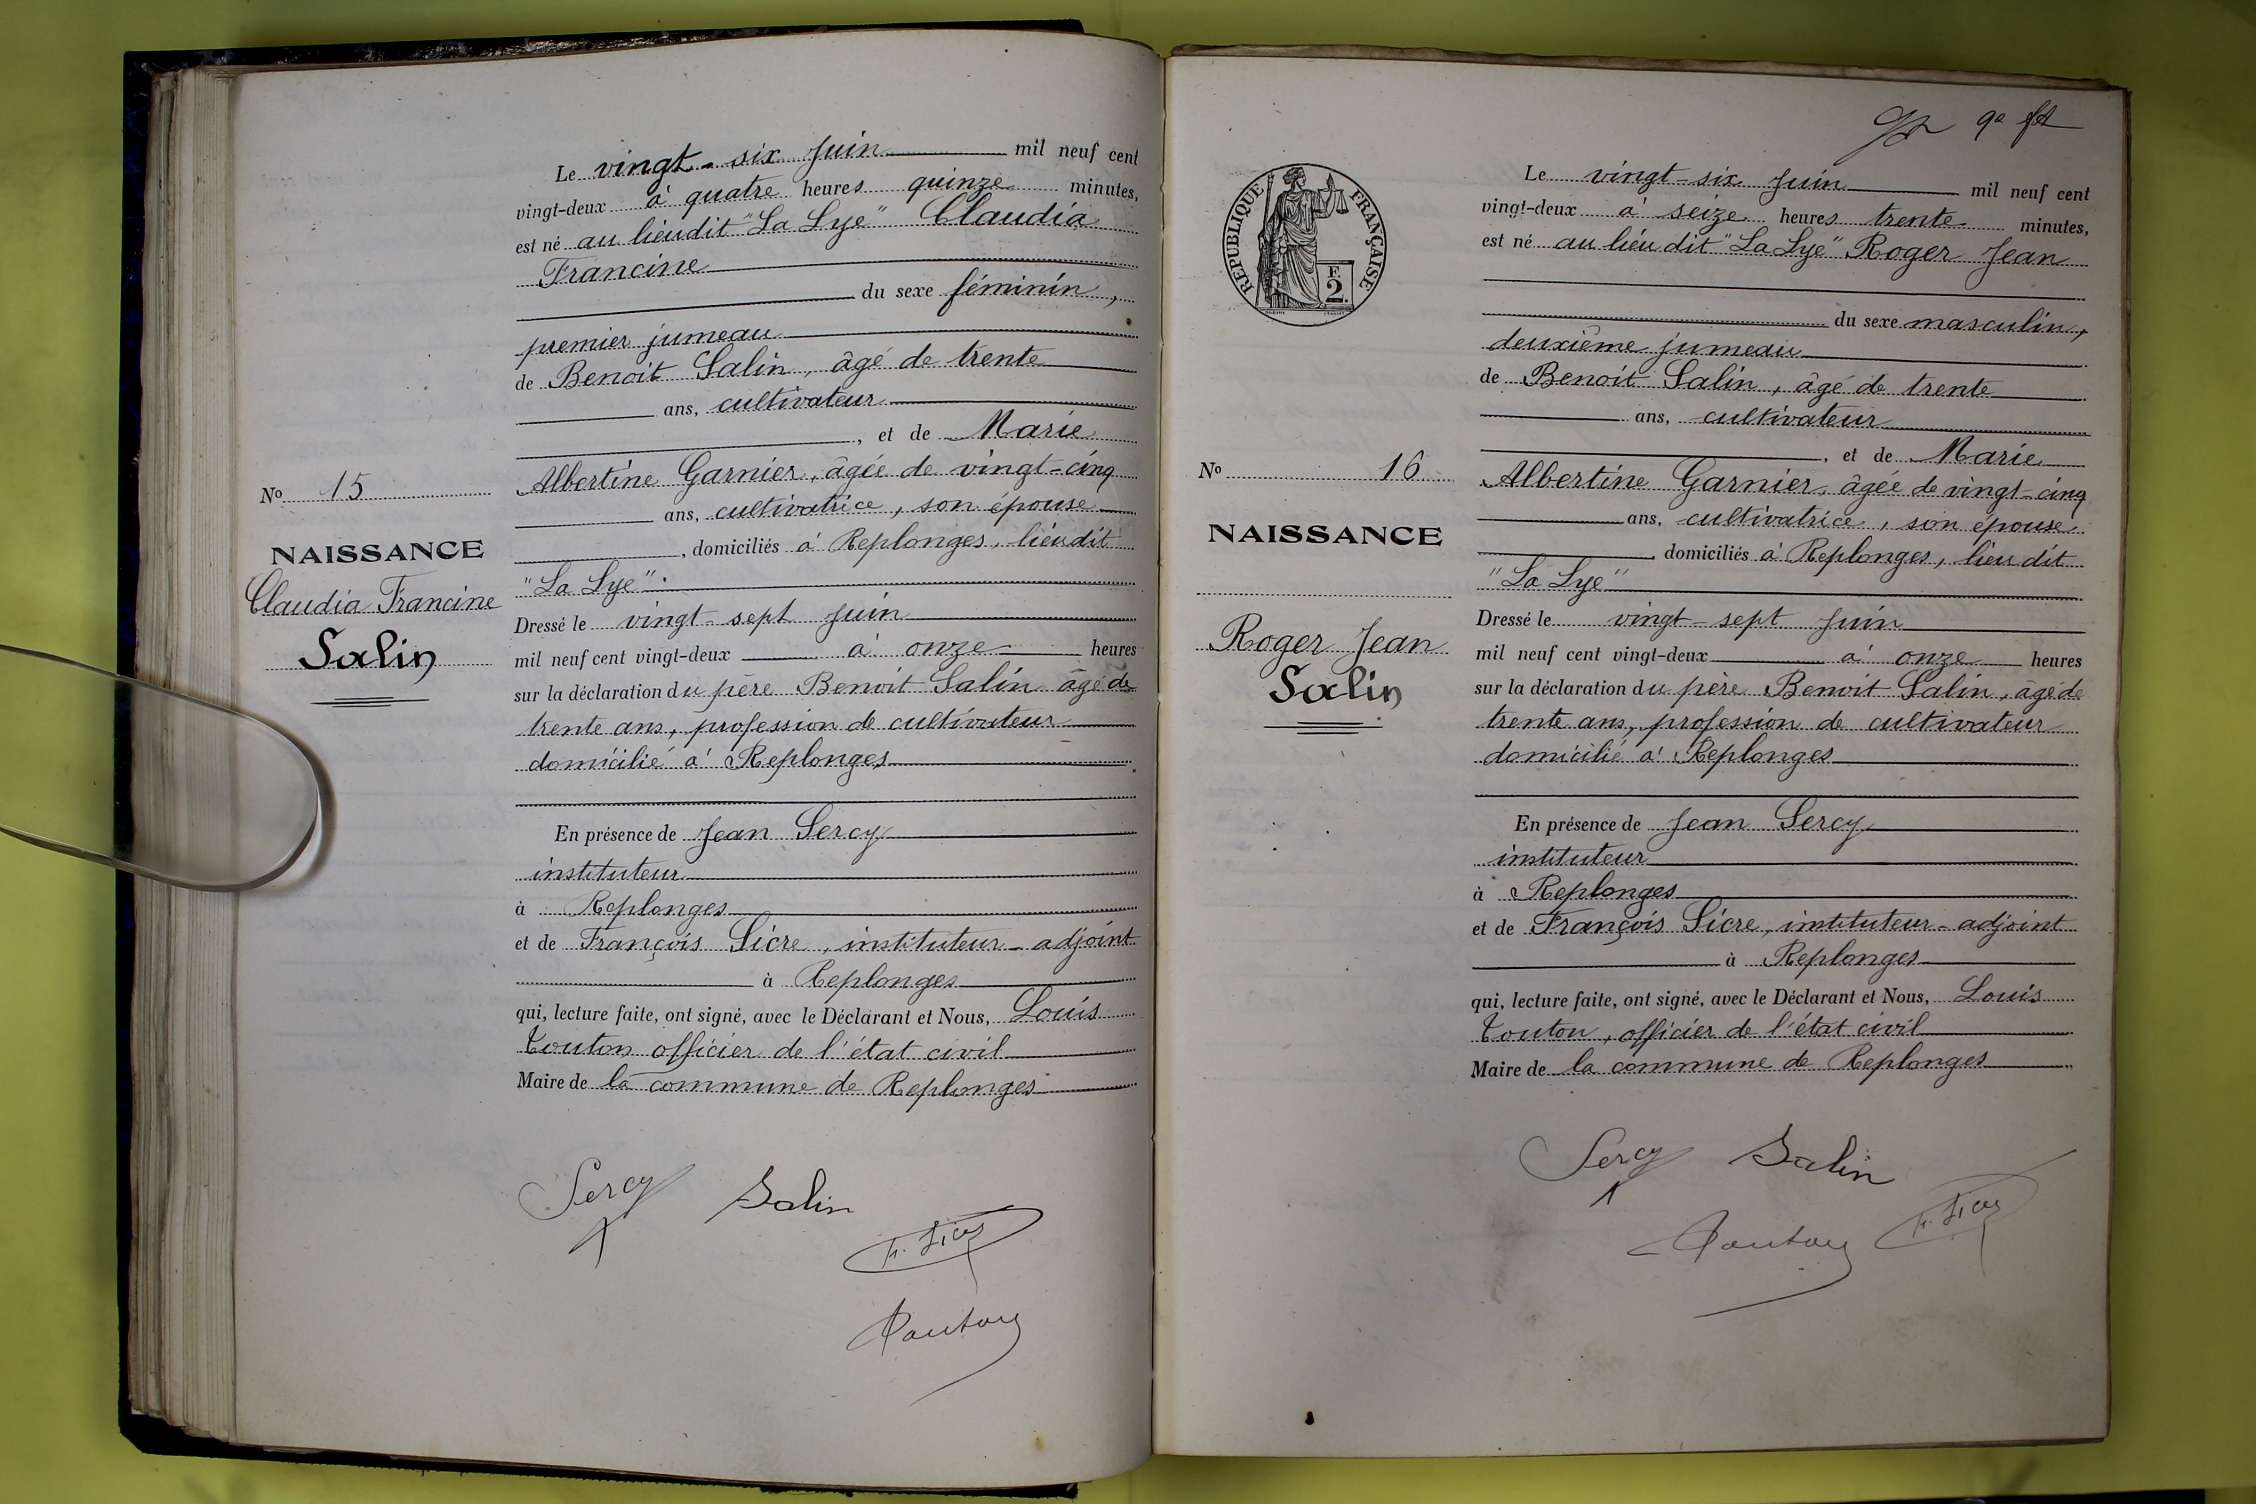 Le vingt-six Juin mil neuf cent
vingt-deux à quatre heures quinze minutes,
est né au lieudit "La Lye" Claudia
Francine
du sexe féminin,
premier jumeau
de Benoit Salin, âgé de trente
ans, cultivateur
, et de Marie
Albertine Garnier, âgée de vingt-cinq
ans, cultivatrice, son épouse
, domiciliés à Replonges, lieudit
"La Lye".
Dressé le vingt-sept Juin
mil neuf cent vingt-deux à onze heures
sur la déclaration du père Benoit Salin âgé de
trente ans, profession de cultivateur
domicilié à Replonges
En présence de Jean Sercy
instituteur
à Replonges
et de François Sicre, instituteur-adjoint
à Replonges
qui, lecture faite, ont signé, avec le Déclarant et Nous, Louis
Touton officier de l'état civil
Maire de la commune de Replonges
Sercy Salin
F. Sicre
Touton
No 15
NAISSANCE
Claudia Francine
Salin
9e
RÉPUBLIQUE FRANÇAISE
F.
2.
No 16
NAISSANCE
Roger Jean
Salin
Le vingt-six Juin mil neuf cent
vingt-deux à seize heures trente minutes,
est né au lieu dit "La Lye" Roger Jean
du sexe masculin,
deuxième jumeau
de Benoit Salin, âgé de trente
ans, cultivateur
, et de Marie
Albertine Garnier, âgée de vingt-cinq
ans, cultivatrice, son épouse
, domiciliés à Replonges, lieu dit
"La Lye"
Dressé le vingt-sept Juin
mil neuf cent vingt-deux à onze heures
sur la déclaration du père Benoit Salin, âgé de
trente ans, profession de cultivateur
domicilié à Replonges
En présence de Jean Sercy
instituteur
à Replonges
et de François Sicre, instituteur-adjoint
à Replonges
qui, lecture faite, ont signé, avec le Déclarant et Nous, Louis
Touton, officier de l'état civil
Maire de la commune de Replonges
Sercy Salin
Touton F. Sicre